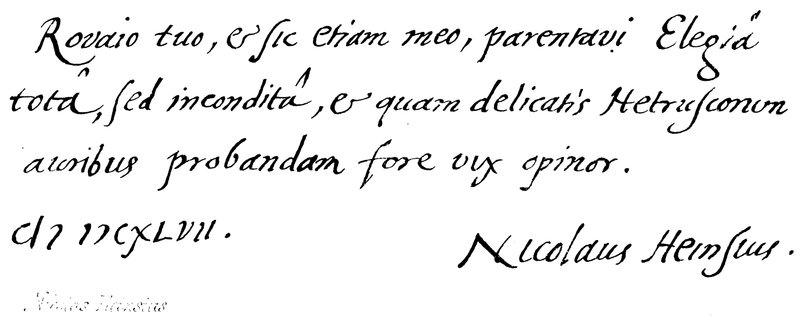 Rovaio tuo, & sic etiam meo, parentavi Elegiâ
totâ, sed inconditâ, & quam delicatis Hetruscorum
auribus probandam fore vix opinor.
CIƆ IƆCXLVII.
Nicolaus Heinsius.
Nicolas Heinsius